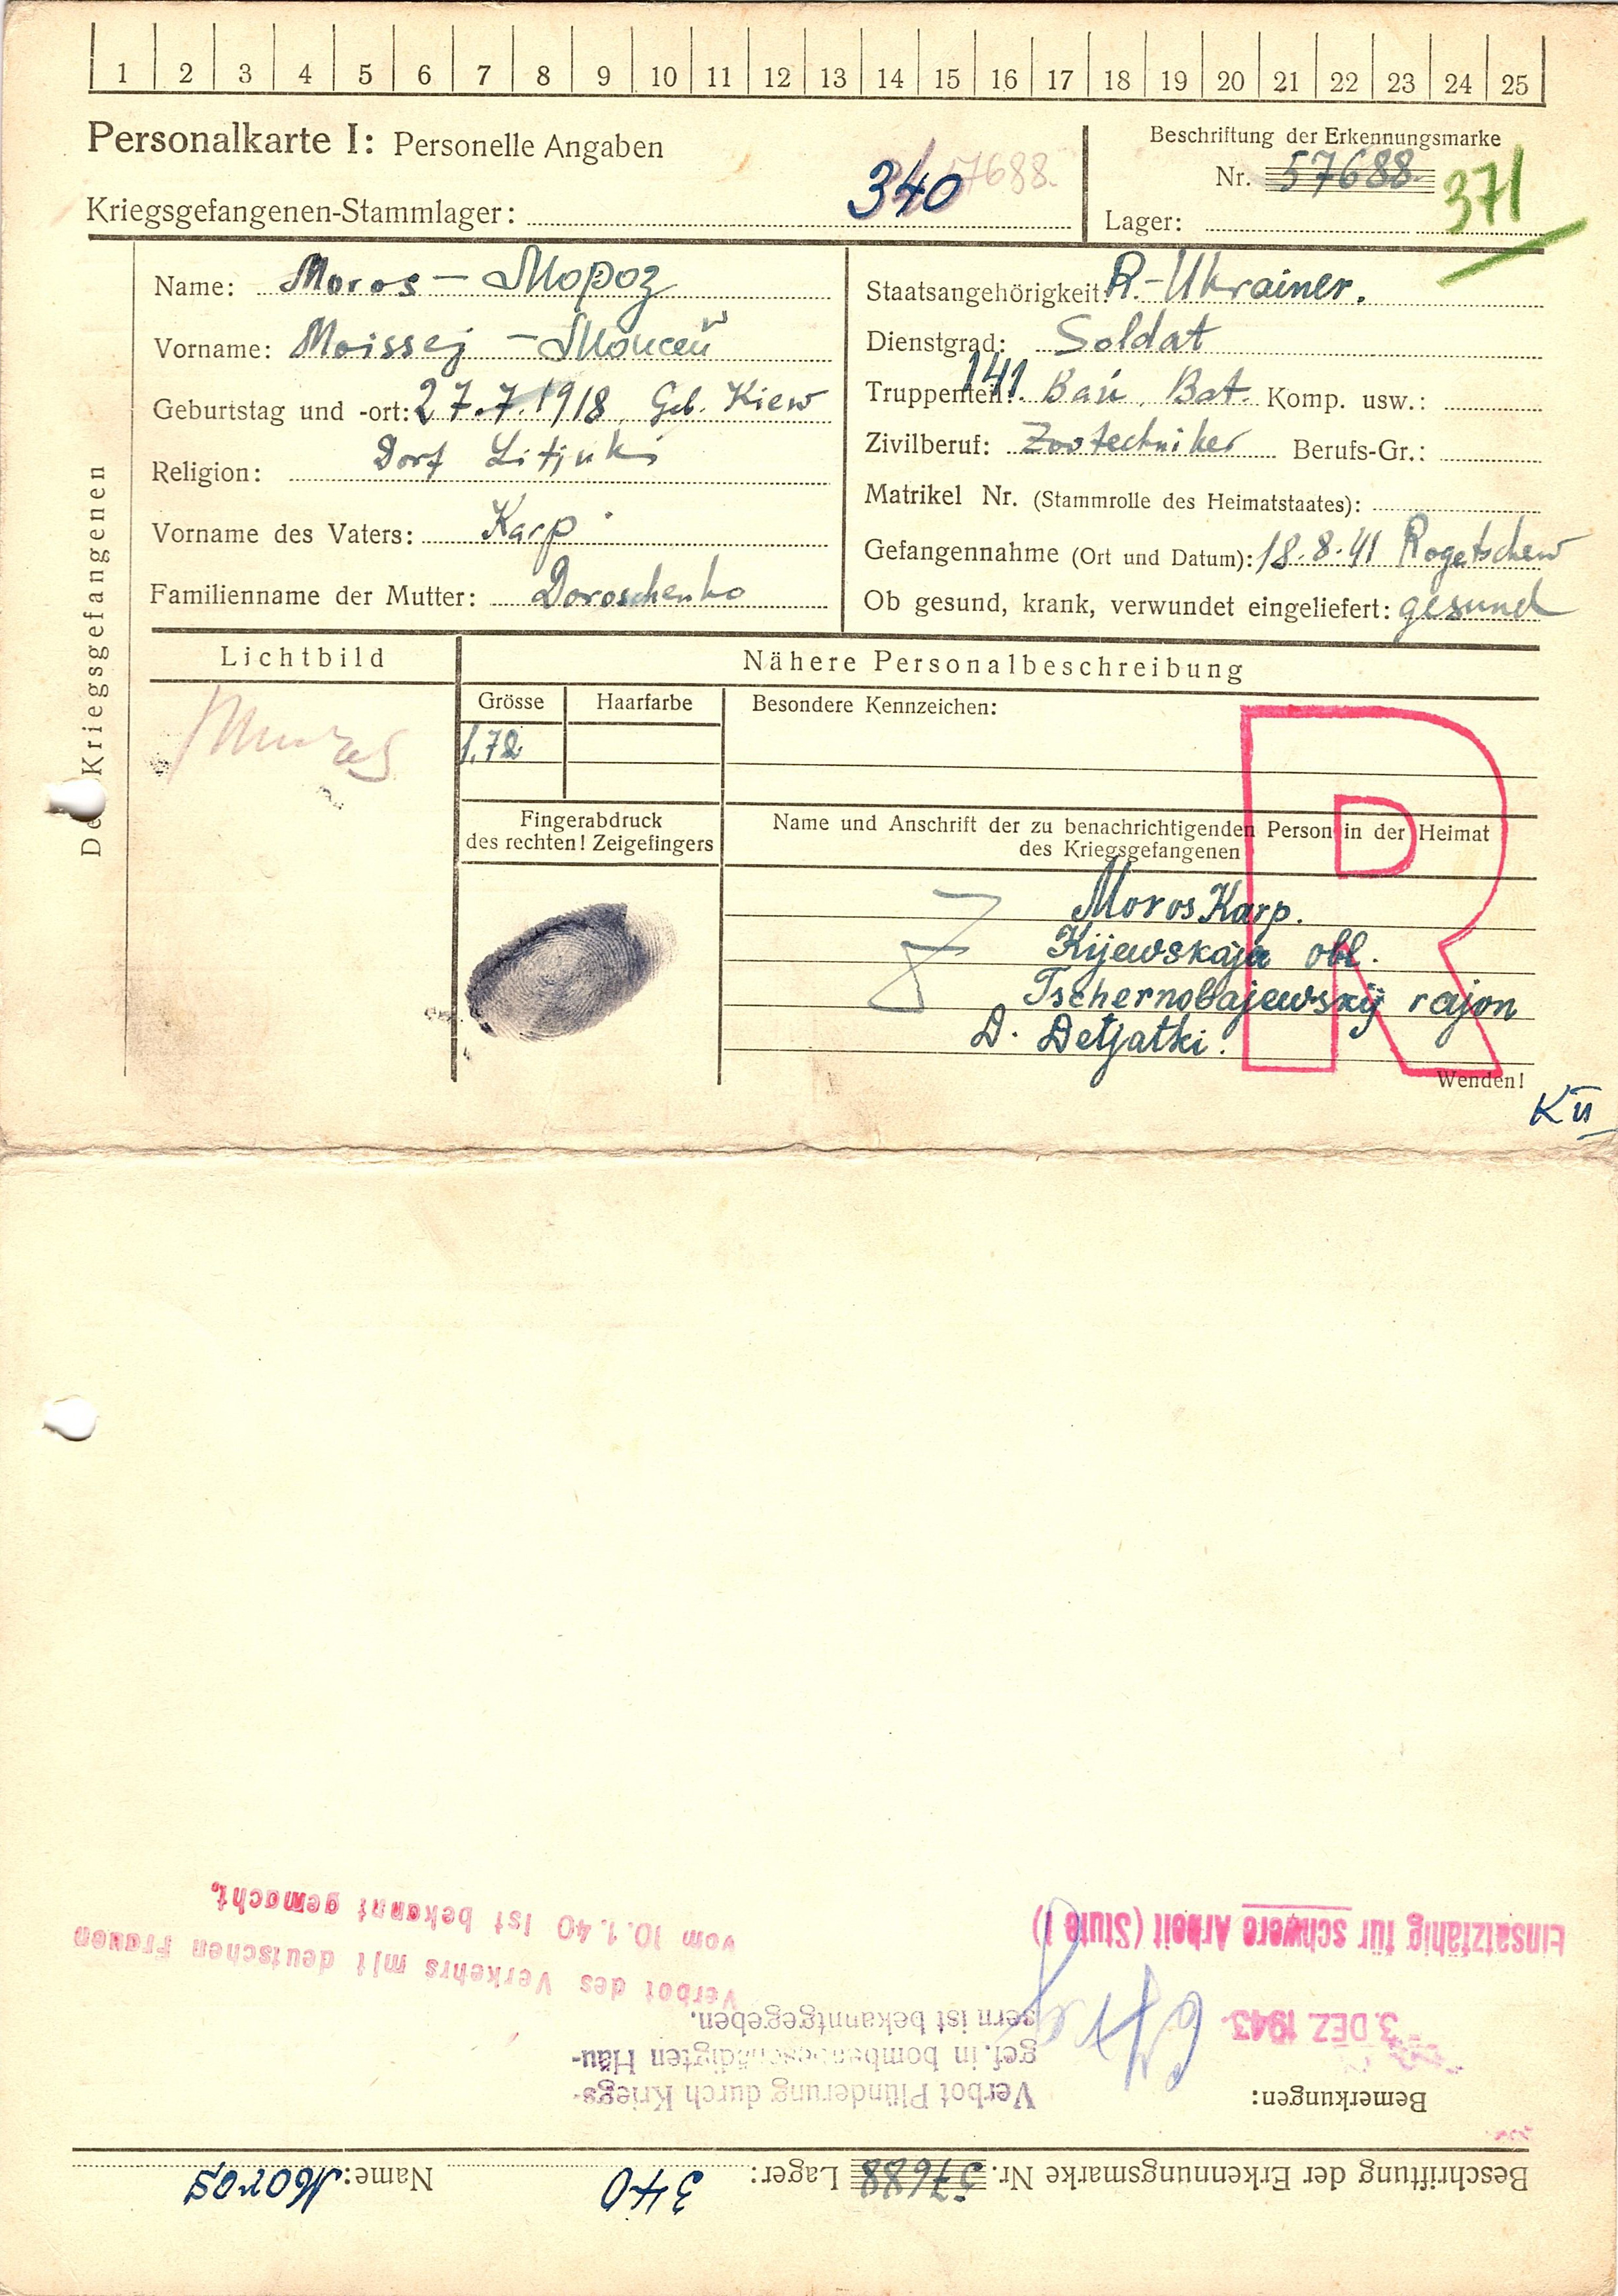 1 2 3 4 5 6 7 8 9 10 11 12 13 14 15 16 17 18 19 20 21 22 23 24 25
Personalkarte I: Personelle Angaben
Kriegsgefangenen-Stammlager: 340 57688.
Beschriftung der Erkennungsmarke
Nr. 57688. 371
Lager:
Des Kriegsgefangenen
Name: Moros – Мороз
Vorname: Moissej – Моисей
Geburtstag und -ort: 27.7.1918 Geb. Kiew
Dorf
Religion:
Vorname des Vaters: Karp
Familienname der Mutter: Doroschenko
Staatsangehörigkeit: R.-Ukrainer.
Dienstgrad: Soldat
Truppenteil: 141. Bau. Bat. Komp. usw.:
Zivilberuf: Zootechniker Berufs-Gr.:
Matrikel Nr. (Stammrolle des Heimatstaates):
Gefangennahme (Ort und Datum): 18.8.41 Rogetschew
Ob gesund, krank, verwundet eingeliefert: gesund
Lichtbild
Nähere Personalbeschreibung
Grösse
Haarfarbe
Besondere Kennzeichen:
1,72
Fingerabdruck
des rechten! Zeigefingers
Name und Anschrift der zu benachrichtigenden Person in der Heimat
des Kriegsgefangenen
R
Moros Karp.
Kijewskaja obl.
Tschernobajewskij rajon
D. Detjatki.
Wenden!
K II
Beschriftung der Erkennungsmarke Nr. 57688 Lager: 340 Name: Moros
Bemerkungen:
3. DEZ. 1943
Einsatzfähig für schwere Arbeit (Stufe I)
Verbot Plünderung durch Kriegs-
gef. in bombenbeschädigten Häu-
sern ist bekanntgegeben.
Verbot des Verkehrs mit deutschen Frauen
vom 10.1.40 ist bekannt gemacht.